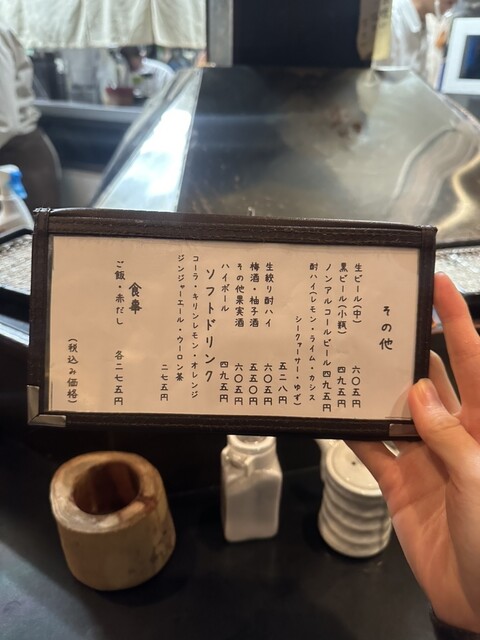 その他
生ビール(中) 六〇五円
黒ビール(小瓶) 四九五円
ノンアルコールビール 四九五円
酎ハイ(レモン・ライム・カシス
シークァーサー・ゆず)
五二八円
生絞り酎ハイ 六〇五円
梅酒・柚子酒 五五〇円
その他果実酒 六〇五円
ハイボール 四九五円
ソフトドリンク
コーラ・キリンレモン・オレンジ
ジンジャーエール・ウーロン茶
二七五円
食事
ご飯・赤だし 各二七五円
(税込み価格)